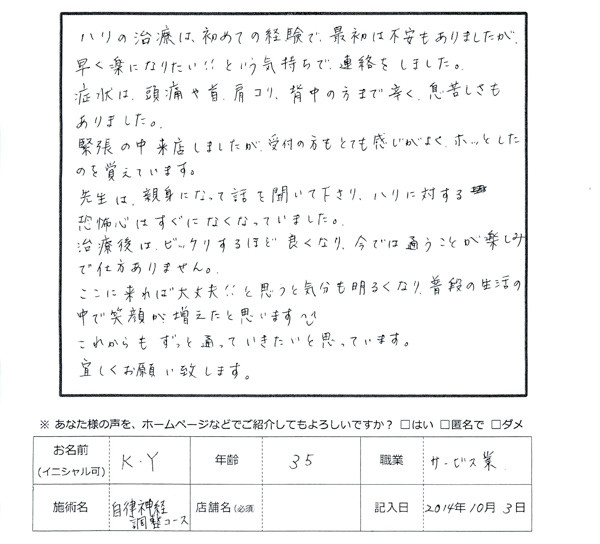 ハリの治療は、初めての経験で、最初は不安もありましたが、
早く楽になりたい!!という気持ちで、連絡をしました。
症状は、頭痛や首、肩コリ、背中の方まで辛く、息苦しさも
ありました。
緊張の中来店しましたが、受付の方もとても感じがよく、ホッとした
のを覚えています。
先生は、親身になって話を聞いて下さり、ハリに対する
恐怖心はすぐになくなっていました。
治療後は、ビックリするほど良くなり、今では通うことが楽しみ
で仕方ありません。
ここに来れば大丈夫!!と思うと気分も明るくなり、普段の生活の
中で笑顔が増えたと思います
これからもずっと通っていきたいと思っています。
宜しくお願い致します。
※ あなた様の声を、ホームページなどでご紹介してもよろしいですか? □はい □匿名で □ダメ
お名前 (イニシャル可) K・Y 年齢 35 職業 サービス業
施術名 自律神経調整コース 店舗名(必須 記入日 2014年10月3日